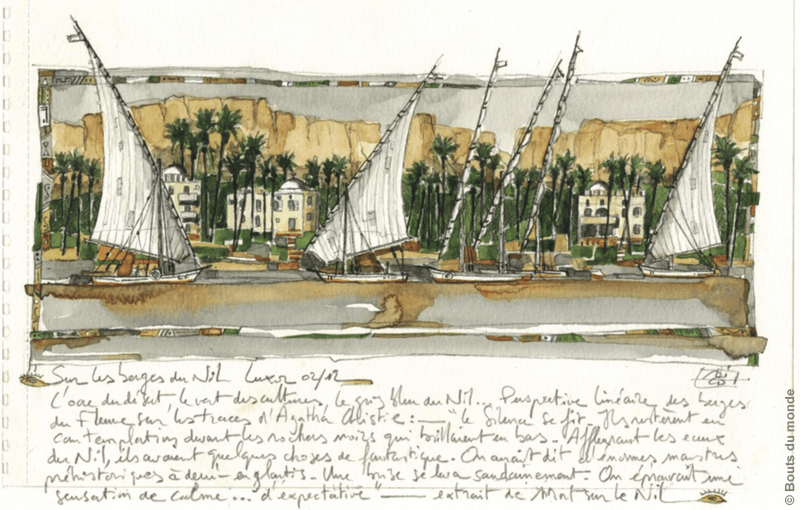 Sur les berges du Nil Luxor 02/12
L'ocre du désert, le vert des cultures, le gris bleu du Nil... Perspective linéaire des berges
du Fleuve sur les traces d'Agatha Christie : — "le Silence se fit. Ils restèrent en
contemplation devant les rochers noirs qui brillaient en bas. Affleurant les eaux
du Nil, ils avaient quelques choses de fantastique. On aurait dit d'énormes monstres
préhistoriques à demi-engloutis. Une brise se leva soudainement. On éprouvait une
sensation de calme... d'expectative" — extrait de Mort sur le Nil
© Bouts du monde